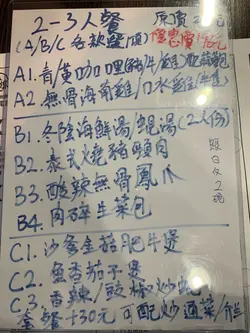 2-3人餐
原價
(A/B/C 各款選1項)
優惠價
A1. 青/黄咖哩
A2. 無骨海南雞/口水雞
B1. 冬陰海鮮湯/蜆湯 (2人份)
B2. 泰式火燒豬頸肉
B3. 酸辣無骨鳳爪
B4. 肉碎生菜包
跟白友2碗
C1. 沙爹金菇肥牛煲
C2. 魚香茄子煲
C3. 香辣/豉椒炒蜆
套餐+30元可配炒通菜/介兰